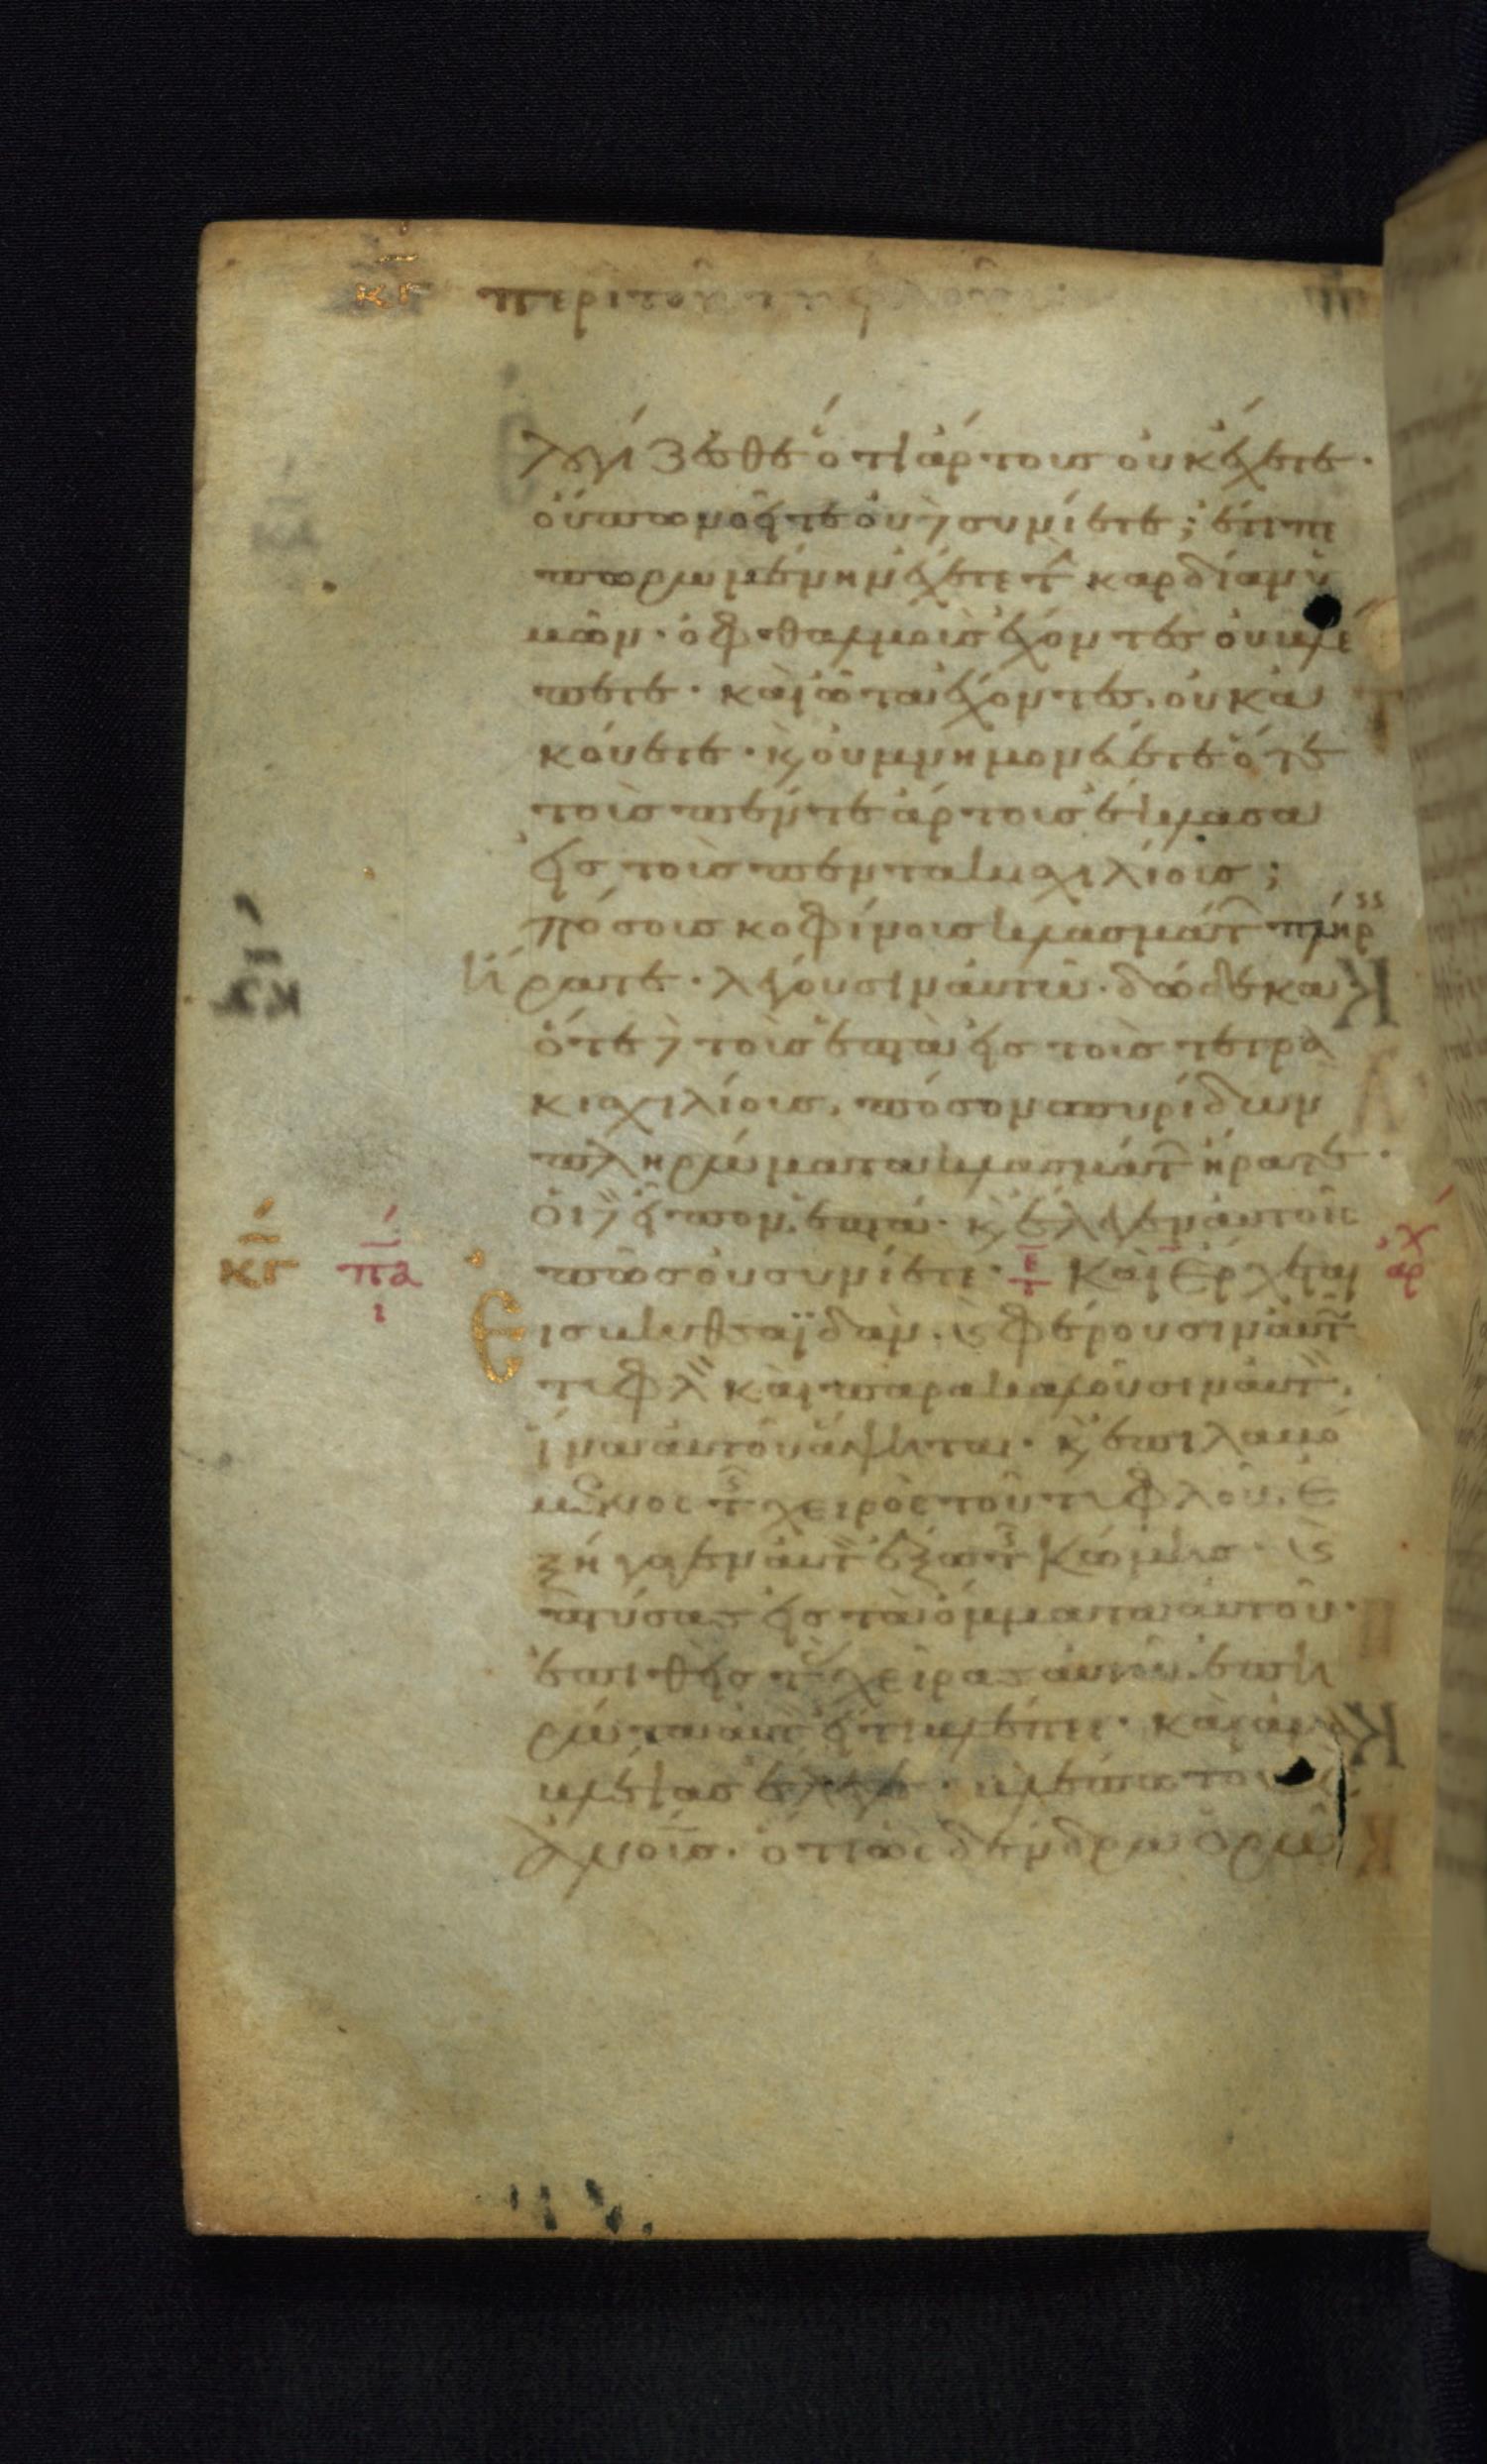 κγ περὶ τοῦ τυφλοῦ
λογίζεσθε ὅτι ἄρτους οὐκ ἔχετε·
οὔπω νοεῖτε οὐδὲ συνίετε; ἔτι πε
πωρωμένην ἔχετε τ καρδίαν ὑ
μῶν· ὀφθαλμοὺς ἔχοντες οὐ βλέ
πετε· καὶ ὦτα ἔχοντες, οὐκ ἀ
κούετε· κ οὐ μνημονεύετε ὅτε
τοὺς πέντε ἄρτους ἔκλασα
εἰς τοὺς πεντακισχιλίους;
πόσους κοφίνους κλασμάτ πλήρ
ἤρατε· λέγουσιν αὐτῶ· δώδεκα
ὅτε δὲ τοὺς ἑπτὰ εἰς τοὺς τετρα
κισχιλίους, πόσων σπυρίδων
πληρώματα κλασμάτ ἤρατε·
οἱ δὲ εἶπον, ἑπτά· κ ἔλεγεν αὐτοῖς
κγ πα ι πῶς οὐ συνίετε· Καὶ Ἔρχεται
εἰς βηθσαϊδάν· κ φέρουσιν αὐτ
τυφλ καὶ παρακαλοῦσιν αὐτ,
ἵνα αὐτοῦ ἅψηται· κ ἐπιλαβό
μενος τ χειρὸς τοῦ τυφλοῦ, ἐ
ξήγαγεν αὐτ ἔξω τ κώμης· κ
πτύσας εἰς τὰ ὄμματα αὐτοῦ·
ἐπιθεὶς τ χεῖρας αὐτοῦ· ἐπη
ρώτα αὐτ εἴ τι βλέπει· καὶ ἀνα
βλέψας ἔλεγε· βλέπω το
ἀνοις· ὅτι ὡς δένδρα ὁρῶ